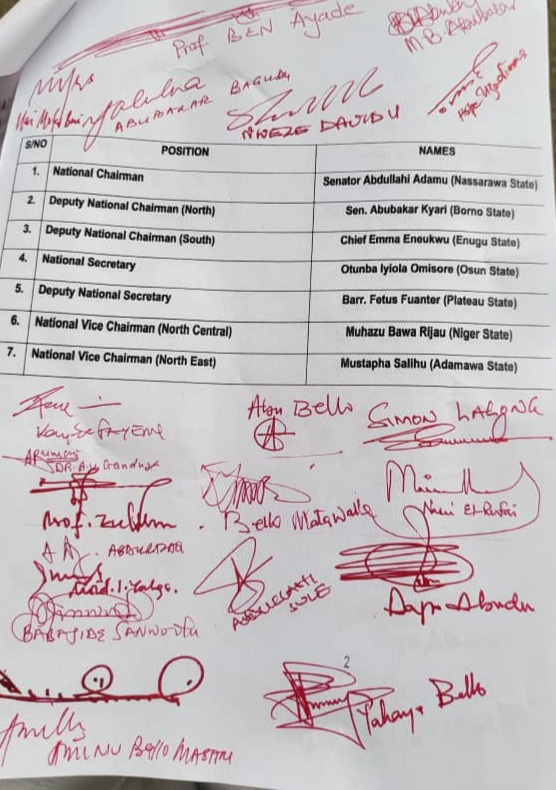 Prof. BEN Ayade
M.B. Abubakar
ABUBAKAR BAGUDU
NWEZE DAVIDU
S/NO POSITION NAMES
1. National Chairman Senator Abdullahi Adamu (Nassarawa State)
2. Deputy National Chairman (North) Sen. Abubakar Kyari (Borno State)
3. Deputy National Chairman (South) Chief Emma Eneukwu (Enugu State)
4. National Secretary Otunba Iyiola Omisore (Osun State)
5. Deputy National Secretary Barr. Fetus Fuanter (Plateau State)
6. National Vice Chairman (North Central) Muhazu Bawa Rijau (Niger State)
7. National Vice Chairman (North East) Mustapha Salihu (Adamawa State)
Abu Bello SIMON LALONG
FAYEMI
DR. A.U. Ganduje
Prof. Zulum . Bello Matawalle El-Rufai
AA . ABDULRAZAQ
ABDULLAHI
SULE
BABAJIDE SANWOOLU Dapo Abiodun
2
Yahaya Bello
AMINU Bello MASARI